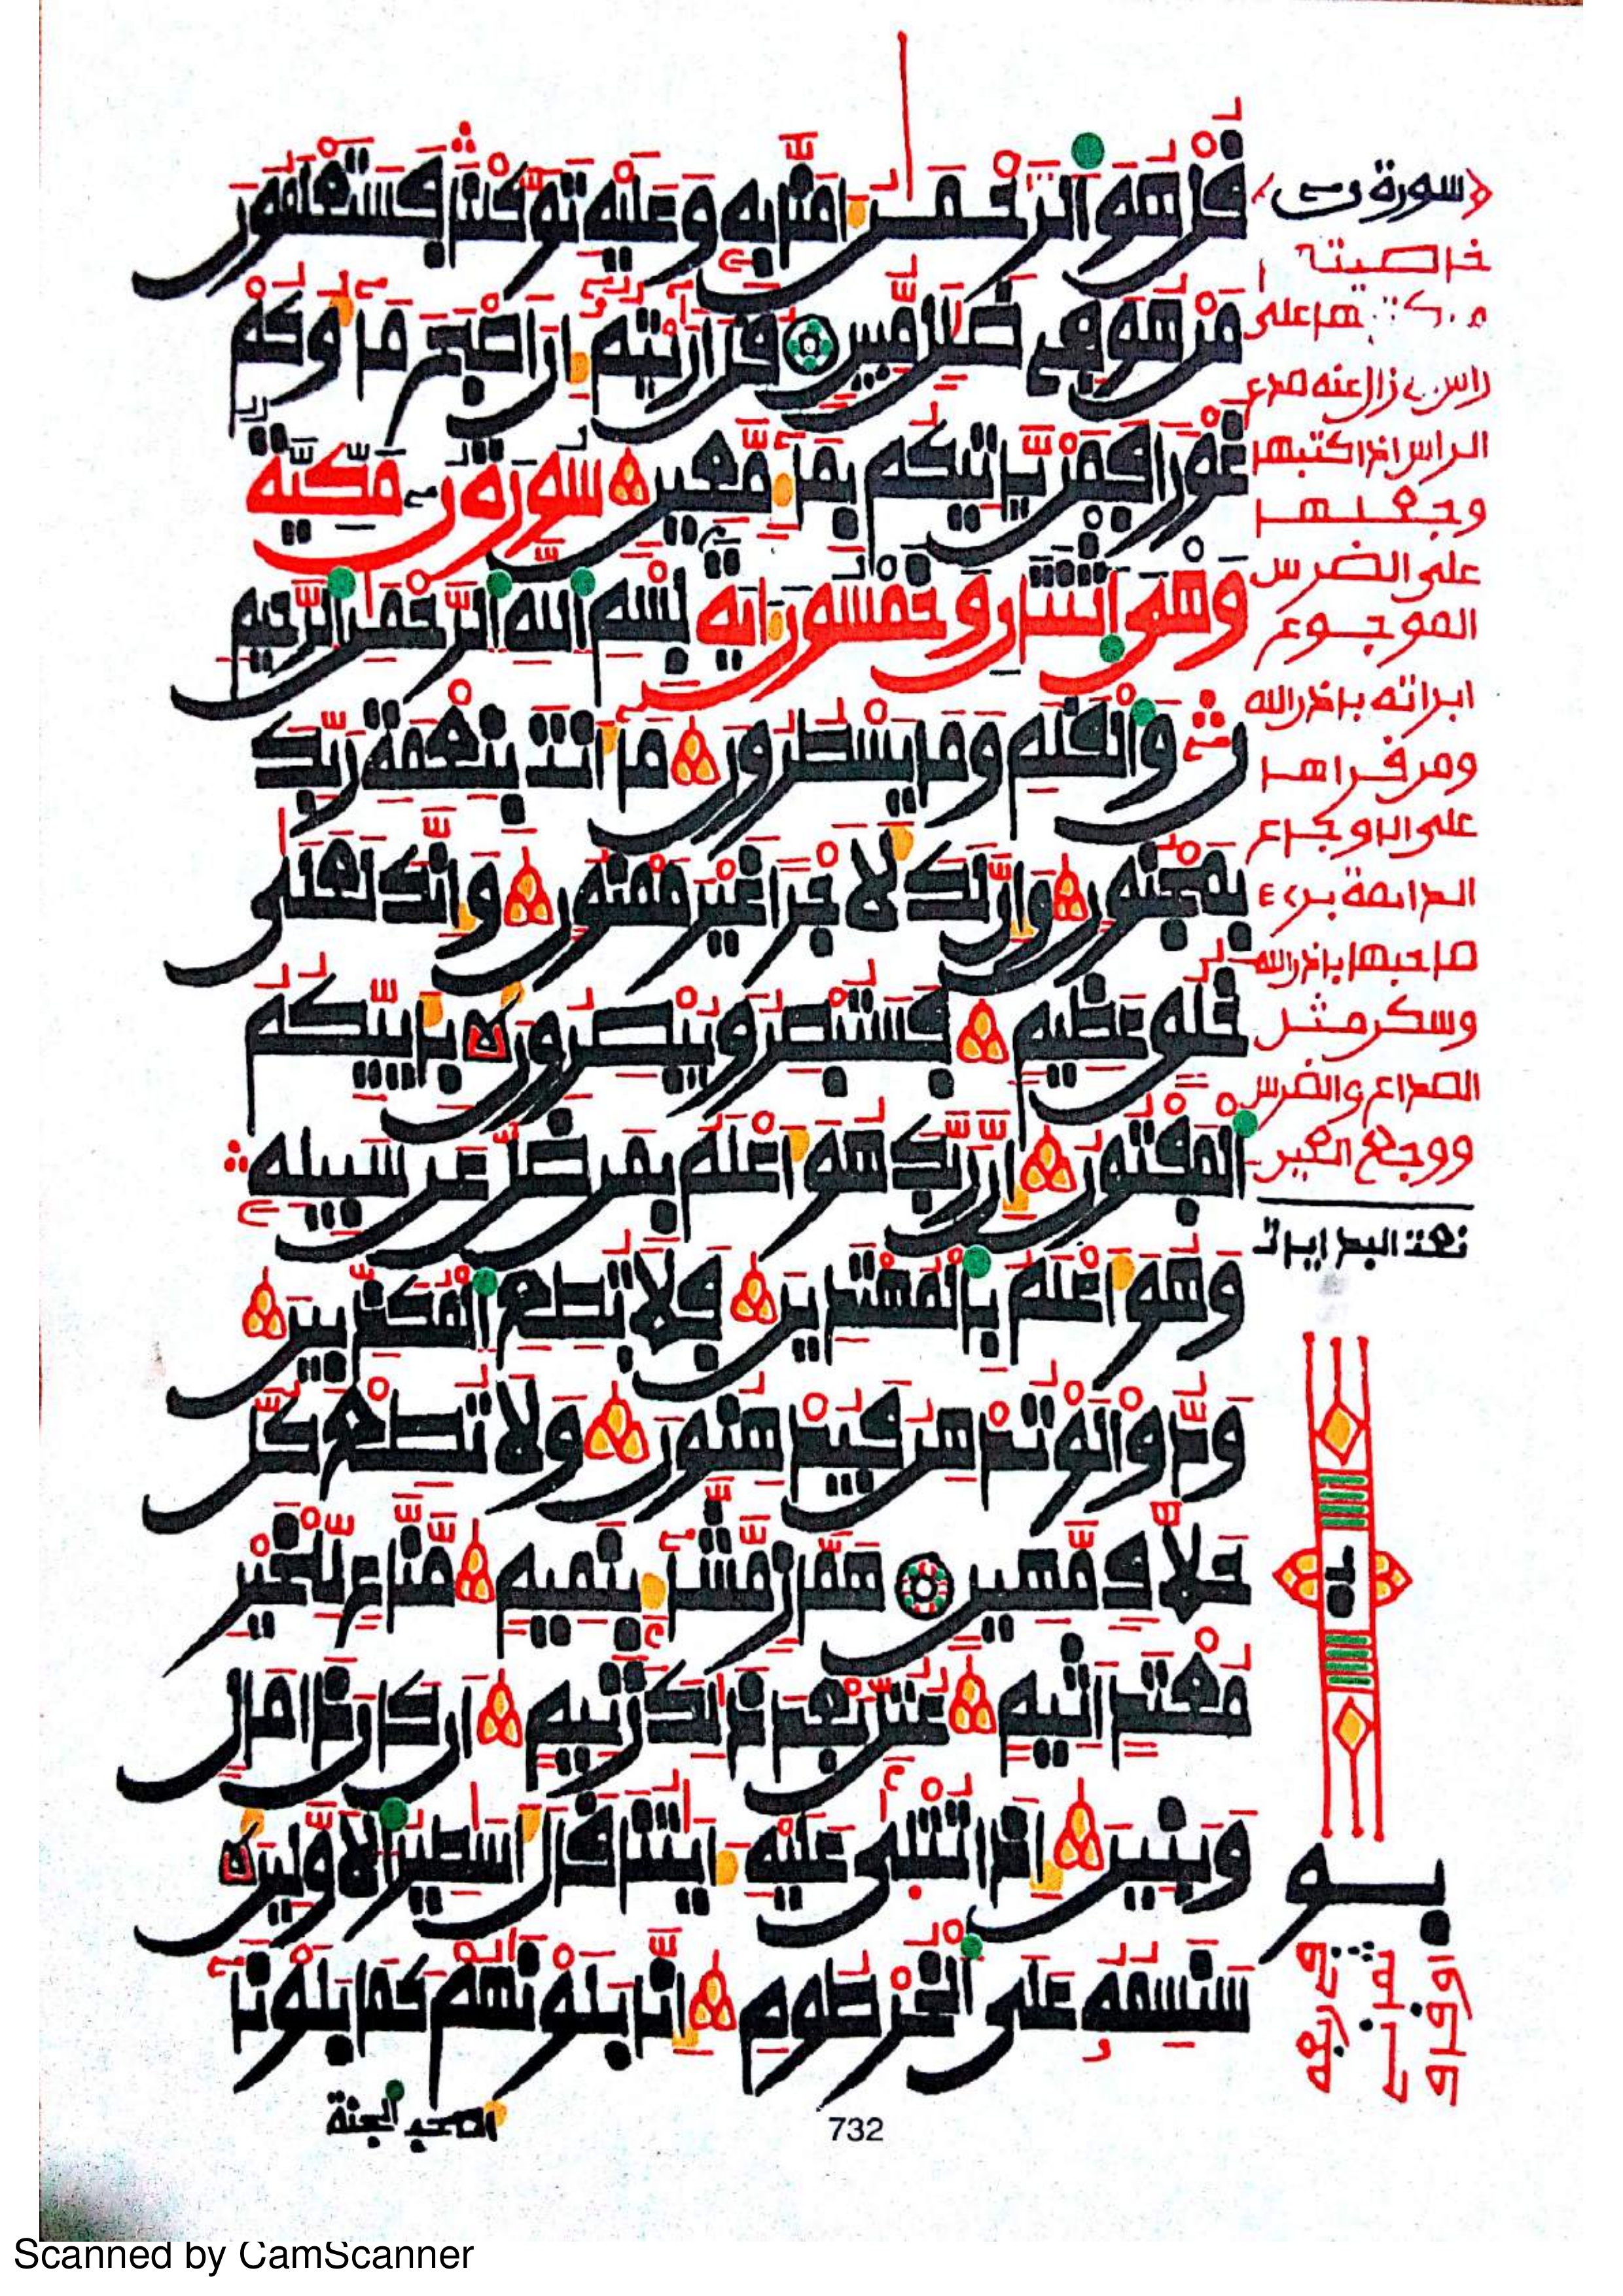 قل هو الرحمن امنا به وعليه توكلنا فستعلمون
من هو في ضلل مبين قل ارايتم ان اصبح ماؤكم
غورا فمن ياتيكم بماء معين سورة ن مكية
وهى اثنتان وخمسون اية بسم الله الرحمن الرحيم
ن والقلم وما يسطرون ما انت بنعمة ربك
بمجنون وان لك لاجرا غير ممنون وانك لعلى
خلق عظيم فستبصر ويبصرون باييكم
المفتون ان ربك هو اعلم بمن ضل عن سبيله
وهو اعلم بالمهتدين فلا تطع المكذبين
ودوا لو تدهن فيدهنون ولا تطع كل
حلاف مهين هماز مشاء بنميم مناع للخير
معتد اثيم عتل بعد ذلك زنيم ان كان ذا مال
وبنين اذا تتلى عليه ايتنا قال اسطير الاولين
سنسمه على الخرطوم انا بلونهم كما بلونا
اصحب الجنة
732
سورة ن
خاصيته
على
راس زال عنه صدع
الراس اذا كتبها
وجعلها
على الضرس
الموجوع
ابراته باذن الله
ومن قراها
على الاوجاع
الدائمة برء
صاحبها باذن الله
وسكن مثل
الصداع والضرس
ووجع العين
Scanned by CamScanner